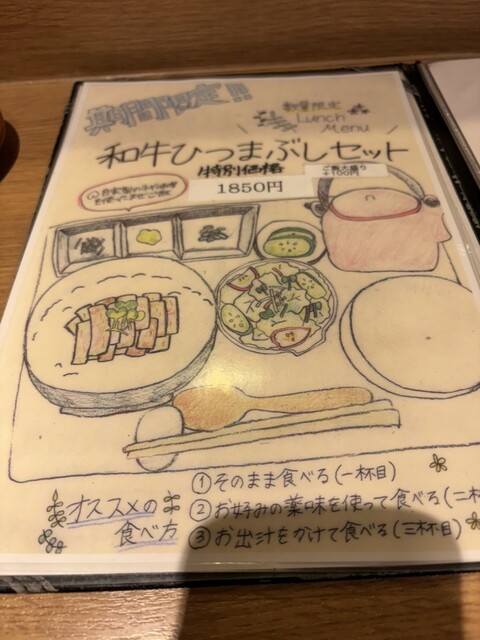 期間限定!!
数量限定
Lunch
Menu
和牛ひつまぶしセット
特別価格
ご飯大盛り
+100円
1850円
を使ったまぜご飯
オススメの
食べ方
①そのまま食べる(一杯目)
②お好みの薬味を使って食べる(二杯
③お出汁をかけて食べる(三杯目)